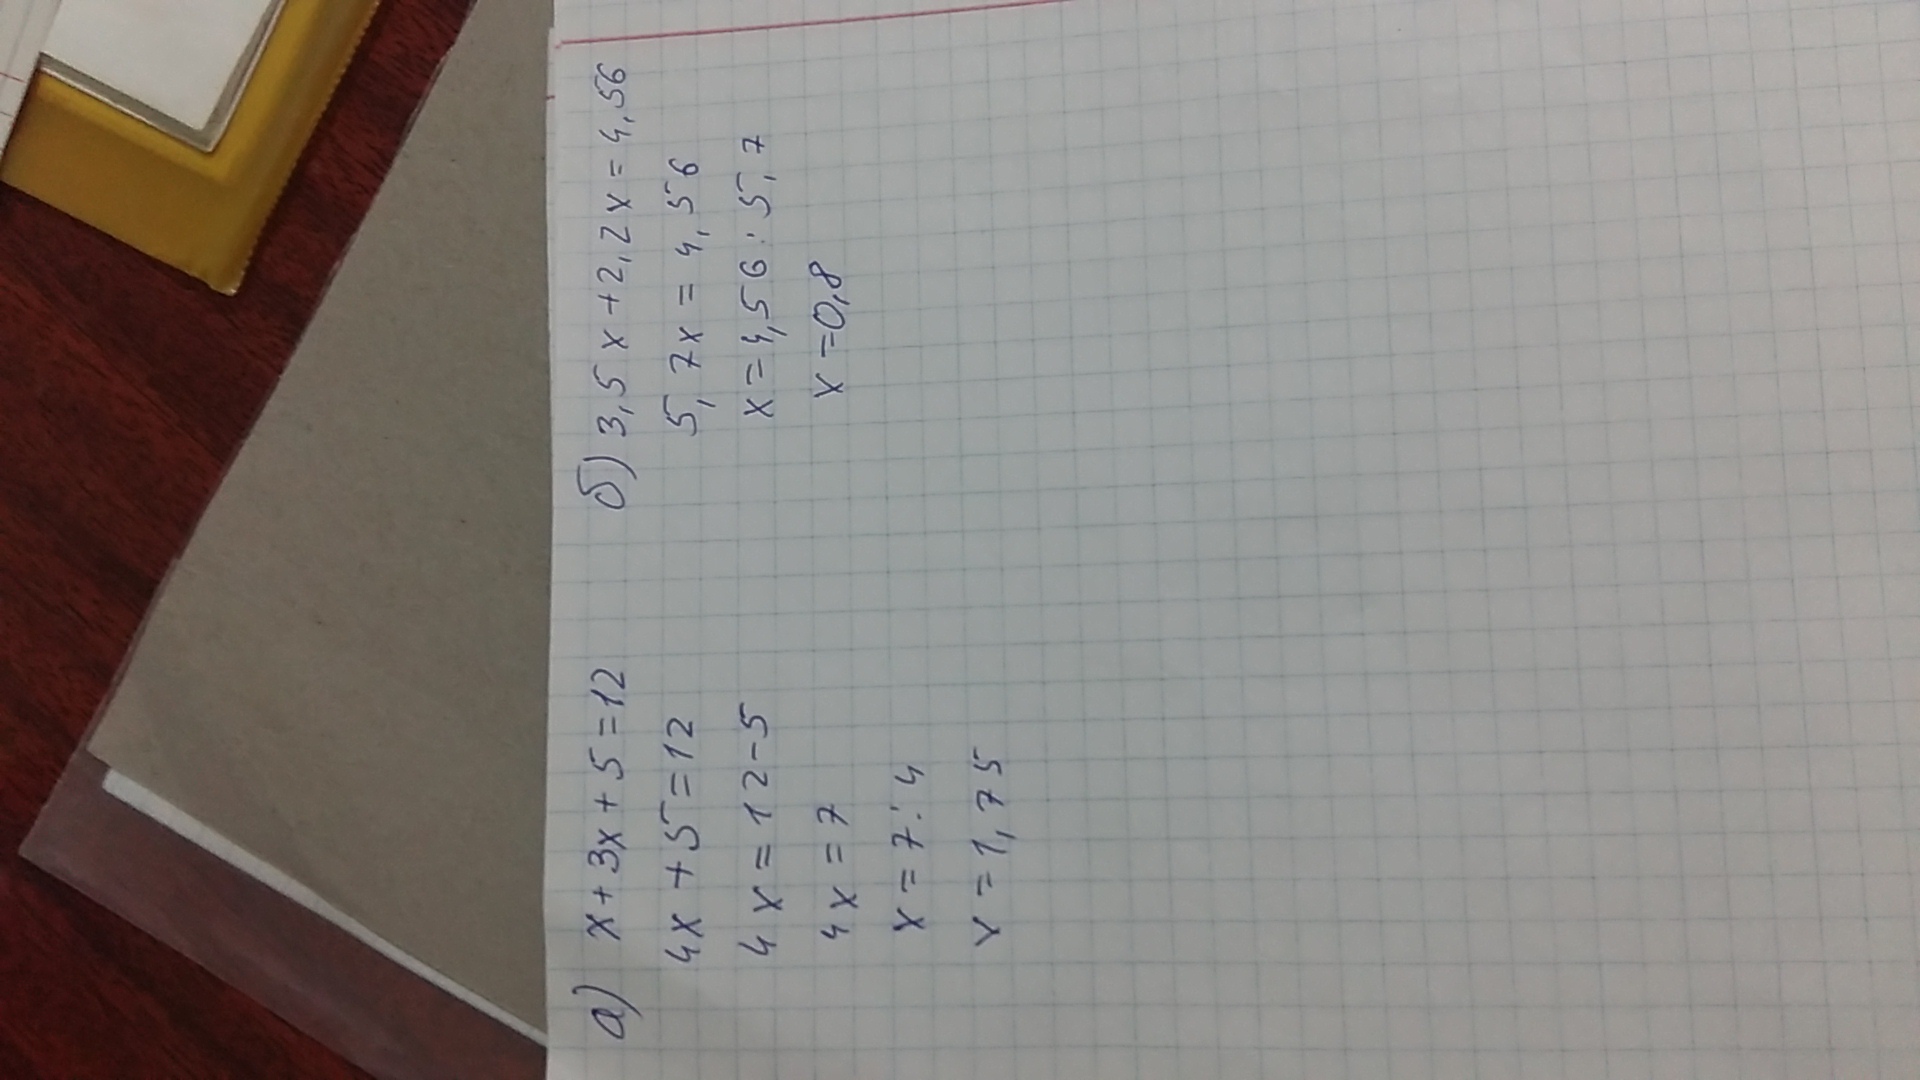 а) x + 3x + 5 = 12
4x + 5 = 12
4x = 12 - 5
4x = 7
x = 7 : 4
x = 1,75
б) 3,5x + 2,2x = 4,56
5,7x = 4,56
x = 4,56 : 5,7
x = 0,8